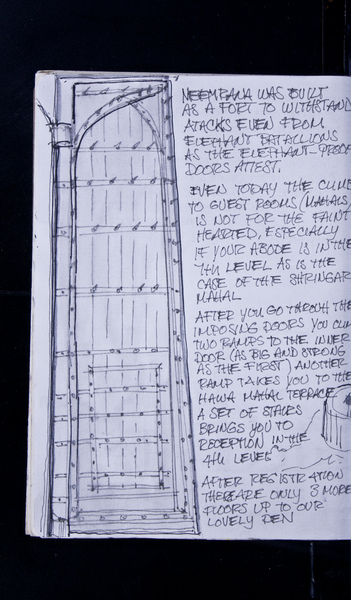 NEEMRANA WAS BUILT
AS A FORT TO WITHSTAND
ATACKS EVEN FROM
ELEPHANT BATALLIONS
AS THE ELEPHANT-PROOF
DOORS ATTEST.
EVEN TODAY THE CLIMB
TO GUEST ROOMS (MAHALS)
IS NOT FOR THE FAINT
HEARTED, ESPECIALLY
IF YOUR ABODE IS IN THE
7th LEVEL AS IS THE
CASE OF THE SHRINGAR
MAHAL
AFTER YOU GO THROUGH THE
IMPOSING DOORS YOU CLIMB
TWO RAMPS TO THE INNER
DOOR (AS BIG AND STRONG
AS THE FIRST) ANOTHER
RAMP TAKES YOU TO THE
HAWA MAHAL TERRACE
A SET OF STAIRS
BRINGS YOU TO
RECEPTION IN THE
4th LEVEL
AFTER REGISTRATION
THERE ARE ONLY 3 MORE
FLOORS UP TO OUR
LOVELY DEN